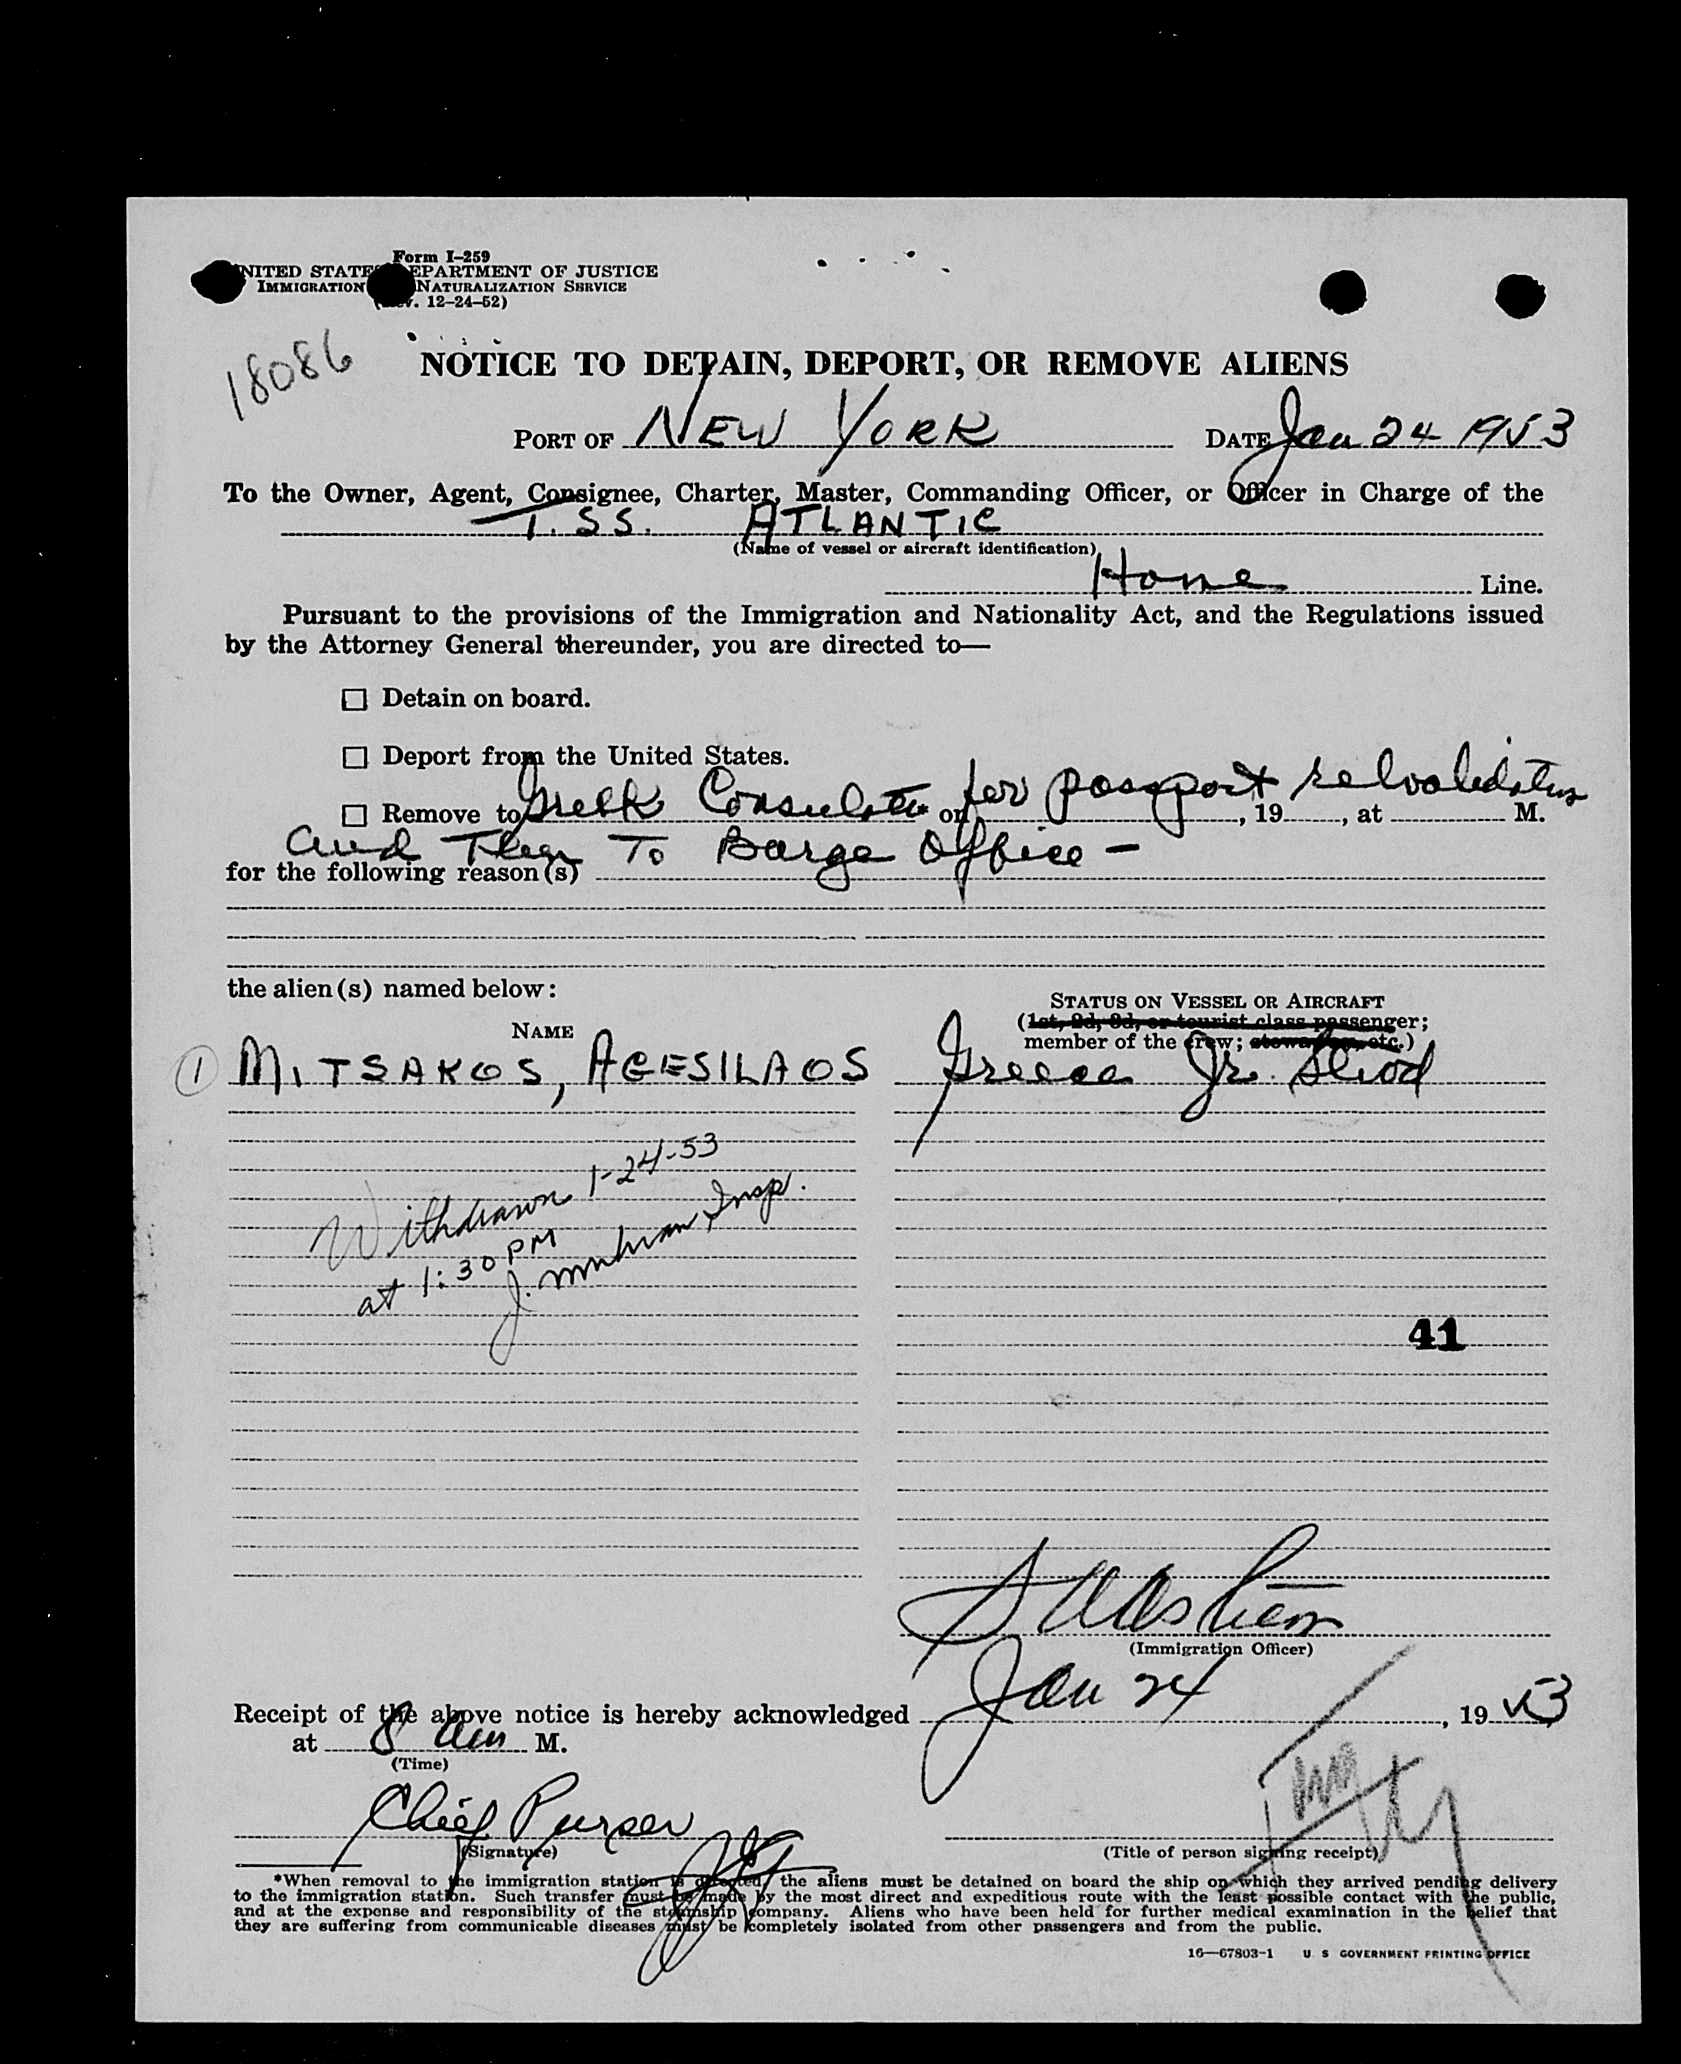 Form I–259
UNITED STATES DEPARTMENT OF JUSTICE
IMMIGRATION NATURALIZATION SERVICE
(Rev. 12–24–52)
18086
NOTICE TO DETAIN, DEPORT, OR REMOVE ALIENS
PORT OF NEW YORK DATE Jan 24 1953
To the Owner, Agent, Consignee, Charter, Master, Commanding Officer, or Officer in Charge of the
T. SS. ATLANTIC
(Name of vessel or aircraft identification)
Home Line.
Pursuant to the provisions of the Immigration and Nationality Act, and the Regulations issued
by the Attorney General thereunder, you are directed to—
☐ Detain on board.
☐ Deport from the United States.
☐ Remove to Greek Consulate* on for passport revalidation, 19, at M.
and Then To Barge Office —
for the following reason(s)
the alien(s) named below:
STATUS ON VESSEL OR AIRCRAFT
NAME
(1st, 2d, 3d, or tourist class passenger;
member of the crew; stowaway, etc.)
1 MITSAKOS, AGESILAOS Greece Jr.
Withdrawn 1-24-53
at 1:30 PM
J. Insp.
41
(Immigration Officer)
Receipt of the above notice is hereby acknowledged Jan 24, 1953
at 8 am M.
(Time)
Chief Purser
(Signature) (Title of person signing receipt)
*When removal to the immigration station is directed, the aliens must be detained on board the ship on which they arrived pending delivery
to the immigration station. Such transfer must be made by the most direct and expeditious route with the least possible contact with the public,
and at the expense and responsibility of the steamship company. Aliens who have been held for further medical examination in the belief that
they are suffering from communicable diseases must be completely isolated from other passengers and from the public.
16—67803-1 U S GOVERNMENT PRINTING OFFICE